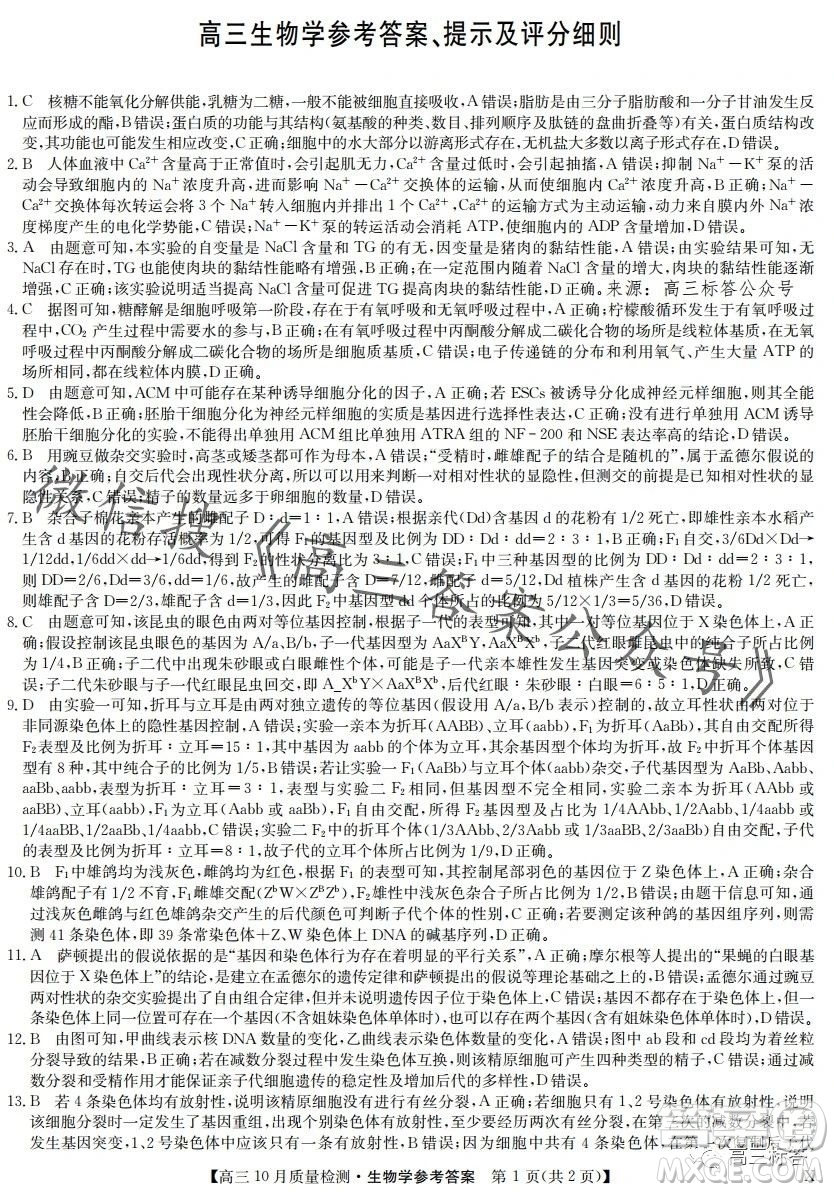 高三生物学参考答案、提示及评分细则
1.C 核糖不能氧化分解供能,乳糖为二糖,一般不能被细胞直接吸收,A错误;脂肪是由三分子脂肪酸和一分子甘油发生反
应而形成的酯,B错误;蛋白质的功能与其结构(氨基酸的种类、数目、排列顺序及肽链的盘曲折叠等)有关,蛋白质结构改
变,其功能也可能发生相应改变,C正确;细胞中的水大部分以游离形式存在,无机盐大多数以离子形式存在,D错误。
2.B 人体血液中Ca²⁺含量高于正常值时,会引起肌无力,Ca²⁺含量过低时,会引起抽搐,A错误;抑制Na⁺-K⁺泵的活
动会导致细胞内的Na⁺浓度升高,进而影响Na⁺-Ca²⁺交换体的运输,从而使得细胞内Ca²⁺浓度升高,B正确;Na⁺-
Ca²⁺交换体每次转运会将3个Na⁺转入细胞内并排出1个Ca²⁺,Ca²⁺的运输方式为主动运输,动力来自膜内外Na⁺浓
度梯度产生的电化学势能,C错误;Na⁺-K⁺泵的转运活动会消耗ATP,使细胞内的ADP含量增加,D错误。
3.A 由题意可知,本实验的自变量是NaCl含量和TG的有无,因变量是猪肉的黏结性能,A错误;由实验结果可知,无
NaCl存在时,TG也能使肉块的黏结性能略有增强,B正确;在一定范围内随着NaCl含量的增大,肉块的黏结性能逐渐
增强,C正确;该实验说明适当提高NaCl含量可促进TG提高肉块的黏结性能,D正确。来源:高三标答公众号
4.C 据图可知,糖酵解是细胞呼吸第一阶段,存在于有氧呼吸和无氧呼吸过程中,A正确;柠檬酸循环发生于有氧呼吸过
程中,CO₂产生过程中需要水的参与,B正确;在有氧呼吸过程中丙酮酸分解成二碳化合物的场所是线粒体基质,在无氧
呼吸过程中丙酮酸分解成二碳化合物的场所是细胞质基质,C错误;电子传递链的分布和利用氧气、产生大量ATP的
场所相同,都在线粒体内膜,D正确。
5.D 由题意可知,ACM中可能存在某种诱导细胞分化的因子,A正确;若ESCs被诱导分化成神经元样细胞,则其全能
性会降低,B正确;胚胎干细胞分化为神经元样细胞的实质是基因进行选择性表达,C正确;没有进行单独的ACM诱导
胚胎干细胞分化的实验,不能得出单独ACM组比单独ATRA组的NF-200和NSE表达率高的结论,D错误。
6.B 用豌豆做杂交实验时,高茎或矮茎都可作为母本,A错误;“受精时,雌雄配子的结合是随机的”,属于孟德尔假说的
内容,B正确;自交后代会出现性状分离,所以可以用来判断一对相对性状的显隐性,但测交的前提是已知相对性状的显
隐性关系,C错误;精子的数量远多于卵细胞的数量,D错误。
7.B 杂合子棉花亲本产生的雌配子D∶d=1∶1,A错误;根据亲代(Dd)含基因d的花粉有1/2死亡,即雄性亲本水稻产
生含d基因的花粉存活概率为1/2,可得F₁的基因型及比例为DD∶Dd∶dd=2∶3∶1,B正确;F₁自交,3/6Dd×Dd→
1/12dd,1/6dd×dd→1/6dd,得到F₂的性状分离比为3∶1,C错误;F₁中三种基因型的比例为DD∶Dd∶dd=2∶3∶1,
则DD=2/6,Dd=3/6,dd=1/6,故产生的雌配子D=7/12,雌配子d=5/12,Dd植株产生含d基因的花粉1/2死亡,
则雄配子含D=2/3,雄配子含d=1/3,因此F₂中基因型dd个体所占的比例为5/12×1/3=5/36,D错误。
8.C 由题意可知,该昆虫的眼色由两对等位基因控制,根据子一代的表型可知,其中一对等位基因位于X染色体上,A正
确;假设控制该昆虫眼色的基因为A/a、B/b,子一代基因型为AaXᴮY、AaXᴮXᵇ,子二代红眼雌昆虫中的纯合子所占比例
为1/4,B正确;子二代中出现朱砂眼或白眼雌性个体,可能是子一代亲本雄性发生基因突变或染色体缺失所致,C错
误;子二代朱砂眼与子一代红眼昆虫回交,即A_XᵇY×AaXᴮXᵇ,后代红眼∶朱砂眼∶白眼=6∶5∶1,D正确。
9.D 由实验一可知,折耳与立耳是由两对独立遗传的等位基因(假设用A/a,B/b表示)控制的,故立耳性状是由两对位于
非同源染色体上的隐性基因控制,A错误;实验一亲本为折耳(AABB)、立耳(aabb),F₁为折耳(AaBb),其自由交配所得
F₂表型及比例为折耳∶立耳=15∶1,其中基因为aabb的个体为立耳,其余基因型个体都为折耳,故F₂中折耳的基因型
有8种,其中纯合子的比例为1/5,B错误;若让实验一F₁(AaBb)与立耳个体(aabb)杂交,子代基因型为AaBb、Aabb、
aaBb、aabb,表型为折耳∶立耳=3∶1,表型与实验二F₂相同,但基因型不完全相同,实验二亲本为折耳(AAbb或
aaBB)、立耳(aabb),F₁为立耳(Aabb或aaBb),F₁自由交配,所得F₂基因型及占比为1/4AAbb、1/2Aabb、1/4aabb或
1/4aaBB、1/2aaBb、1/4aabb,C错误;实验二F₂中的折耳个体(1/3AABb、2/3Aabb或1/3aaBB、2/3aaBb)自由交配,子代
的表型为折耳∶立耳=8∶1,故子代的立耳个体所占比例为1/9,D正确。
10.B F₁中雄鸽均为浅灰色,雌鸽均为红色,根据F₁的表型可知,其控制尾部羽色的基因位于Z染色体上,A正确;杂合
雄鸽配子有1/2不育,F₁雌雄交配(ZᵇW×ZᴮZᵇ),F₂雄性中浅灰色杂合子所占比例为1/2,B错误;由题干信息可知,用
浅灰色雌鸽与红色雄鸽杂交产生的后代颜色可判断子代个体的性别,C正确;若测定该种鸽的基因组序列,则
需测41条染色体,即39条常染色体+Z、W染色体上DNA的碱基序列,D正确。
11.A 萨顿提出的假说依据的是“基因和染色体行为存在着明显的平行关系”,A正确;摩尔根等人提出的“果蝇的白眼基
因位于X染色体上”的结论,是建立在孟德尔的遗传定律和萨顿提出的假说等理论基础之上的,B错误;孟德尔通过豌豆
两对性状的杂交实验提出了自由组合定律,但没有证实其遗传因子位于染色体上,C错误;同源染色体位于两条染色
体上相同一位置可存在一个基因(不含姐妹染色体单体时),也可以存在两个基因(含有姐妹染色体单体时),D错误。
12.B 由图可知,甲曲线表示核DNA数量的变化,乙曲线表示染色体数量的变化,A错误;图中ab段和cd段均为着丝粒
分裂导致的结果,B正确;若在减数分裂过程中发生染色体互换,则该精原细胞可产生四种类型的精子,C错误;减数分
裂和受精作用才能保证亲子代细胞遗传的稳定性与增加后代的多样性,D错误。
13.B 若4条染色体均有放射性,说明该精原细胞没有进行过有丝分裂,A错误;若仅1、2号染色体有放射性,说明
该细胞分裂时一定发生了基因重组,B正确;该细胞在减数分裂之前可能进行过多次有丝分裂,在第二次的减数分裂,若
发生基因突变,1、2号染色体中共有4条染色体,在第二
【高三10月质量检测·生物学参考答案 第1页(共2页)】
微信搜《高三答案公众号》
高三标答
MXQE.COM